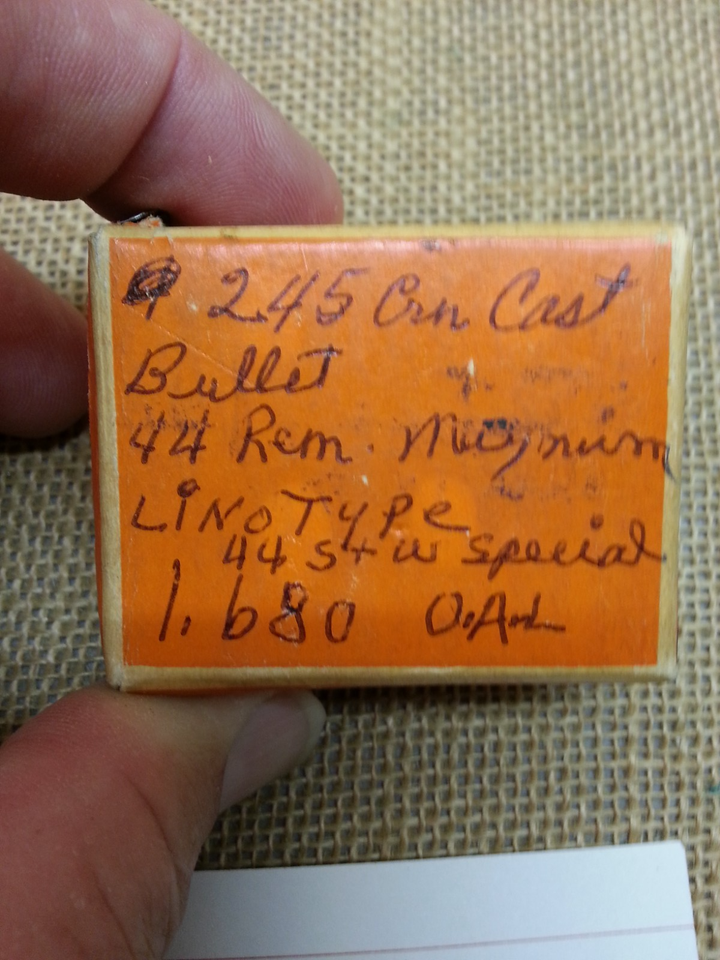 245 Grn Cast
Bullet
44 Rem. Magnum
LiNoType
44 S+W special
1.680 O.A.L